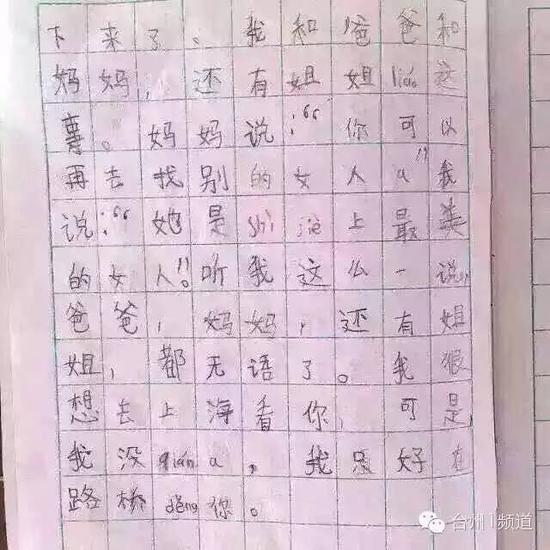 下来了。我和爸爸和
妈妈，还有姐姐liáo这
事。妈妈说：“你可以
再去找别的女人a”我
说：“她是shì jiè上最美
的女人”。听我这么一说，
爸爸，妈妈，还有姐
姐，都无语了。我狠
想去上海看你，可是，
我没qián a，我只好在
路桥děng你。
台州1频道